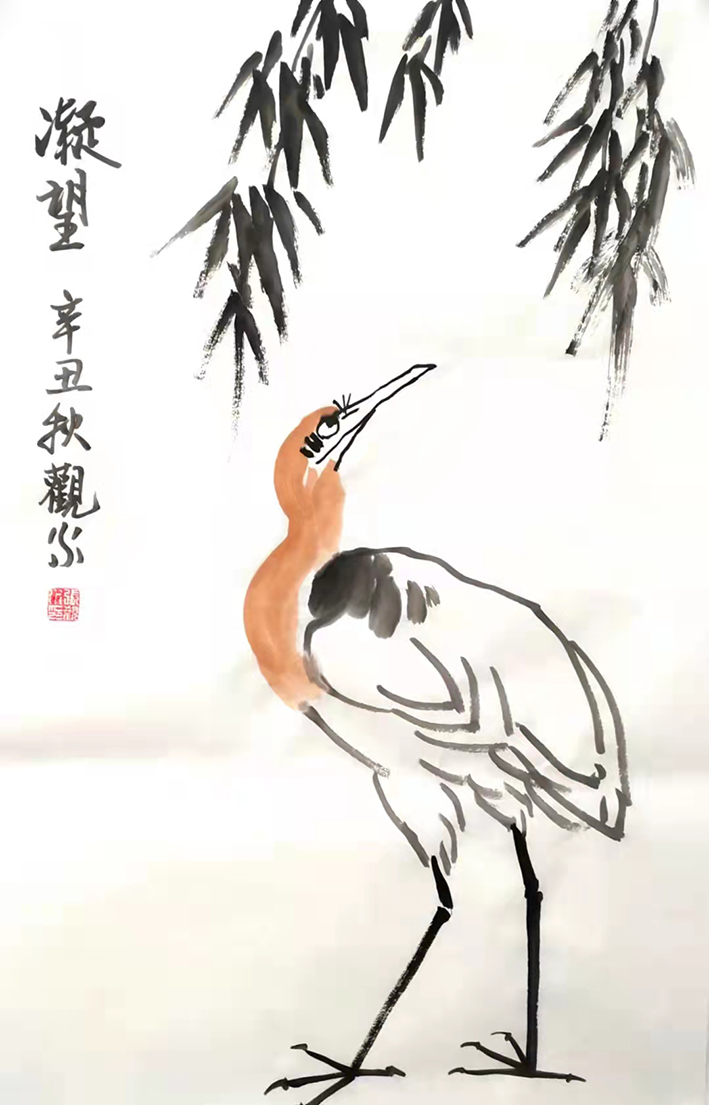 凝望 辛丑秋觀